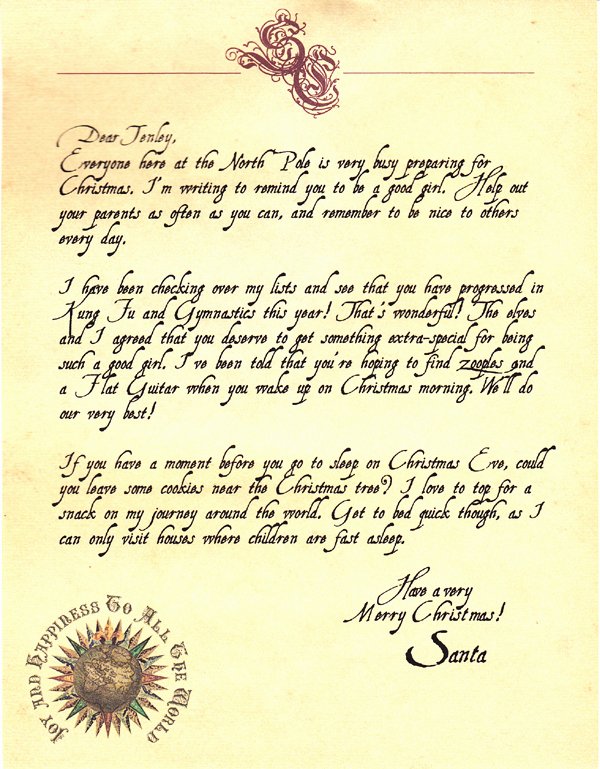 SC
Dear Tenley,
Everyone here at the North Pole is very busy preparing for
Christmas. I'm writing to remind you to be a good girl. Help out
your parents as often as you can, and remember to be nice to others
every day.
I have been checking over my lists and see that you have progressed in
Kung Fu and Gymnastics this year! That's wonderful! The elves
and I agreed that you deserve to get something extra-special for being
such a good girl. I've been told that you're hoping to find zooples and
a Flat Guitar when you wake up on Christmas morning. We'll do
our very best!
If you have a moment before you go to sleep on Christmas Eve, could
you leave some cookies near the Christmas tree? I love to top for a
snack on my journey around the world. Get to bed quick though, as I
can only visit houses where children are fast asleep.
Have a very
Merry Christmas!
Santa
Joy and Happiness To All The World